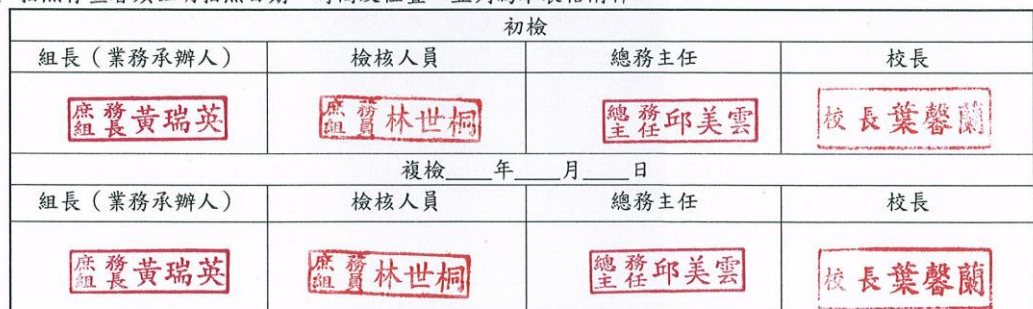 初檢
組長（業務承辦人） 檢核人員 總務主任 校長
庶務組長 黃瑞英 庶務組員 林世桐 總務主任 邱美雲 校長 葉馨蘭
複檢____年____月____日
組長（業務承辦人） 檢核人員 總務主任 校長
庶務組長 黃瑞英 庶務組員 林世桐 總務主任 邱美雲 校長 葉馨蘭